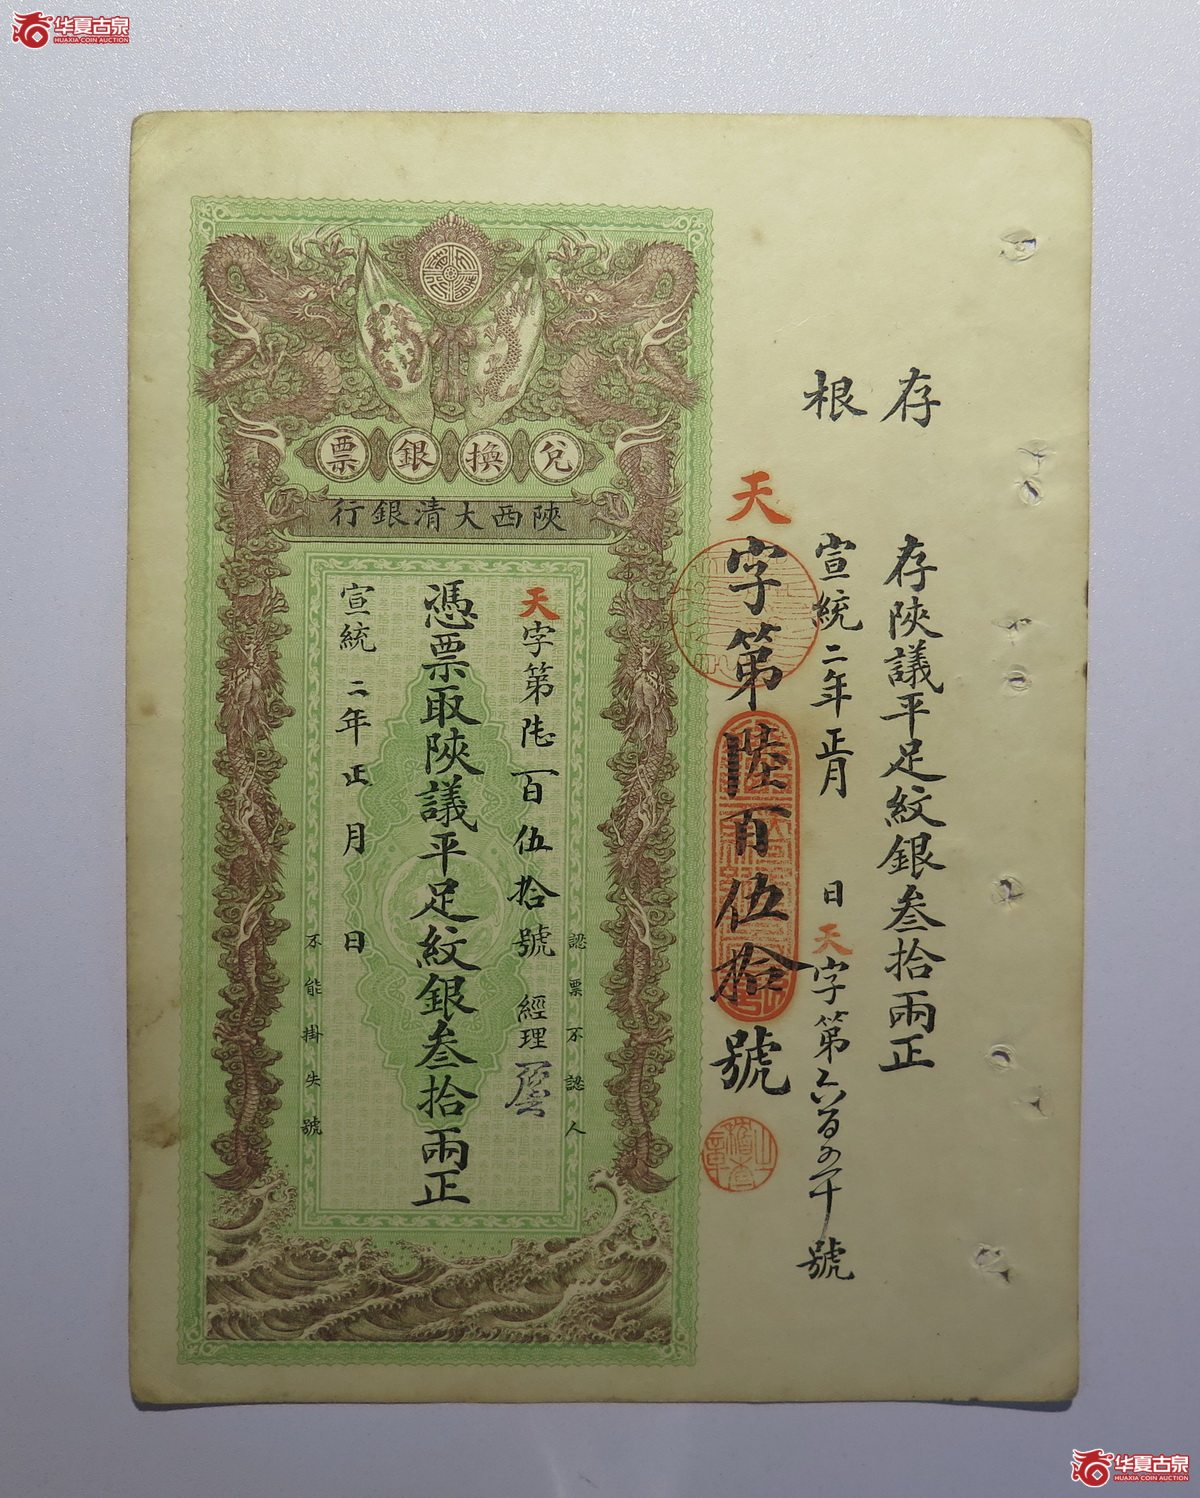 华夏古泉
HUAXIA COIN AUCTION
存根
存陝議平足紋銀叁拾兩正
宣統二年正月 日天字第六百五十號
天字第陸百伍拾號
兌換銀票
陝西大清銀行
認票不認人
天字第陸百伍拾號 經理
憑票取陝議平足紋銀叁拾兩正
宣統二年正月 日
不能掛失號
华夏古泉
HUAXIA COIN AUCTION